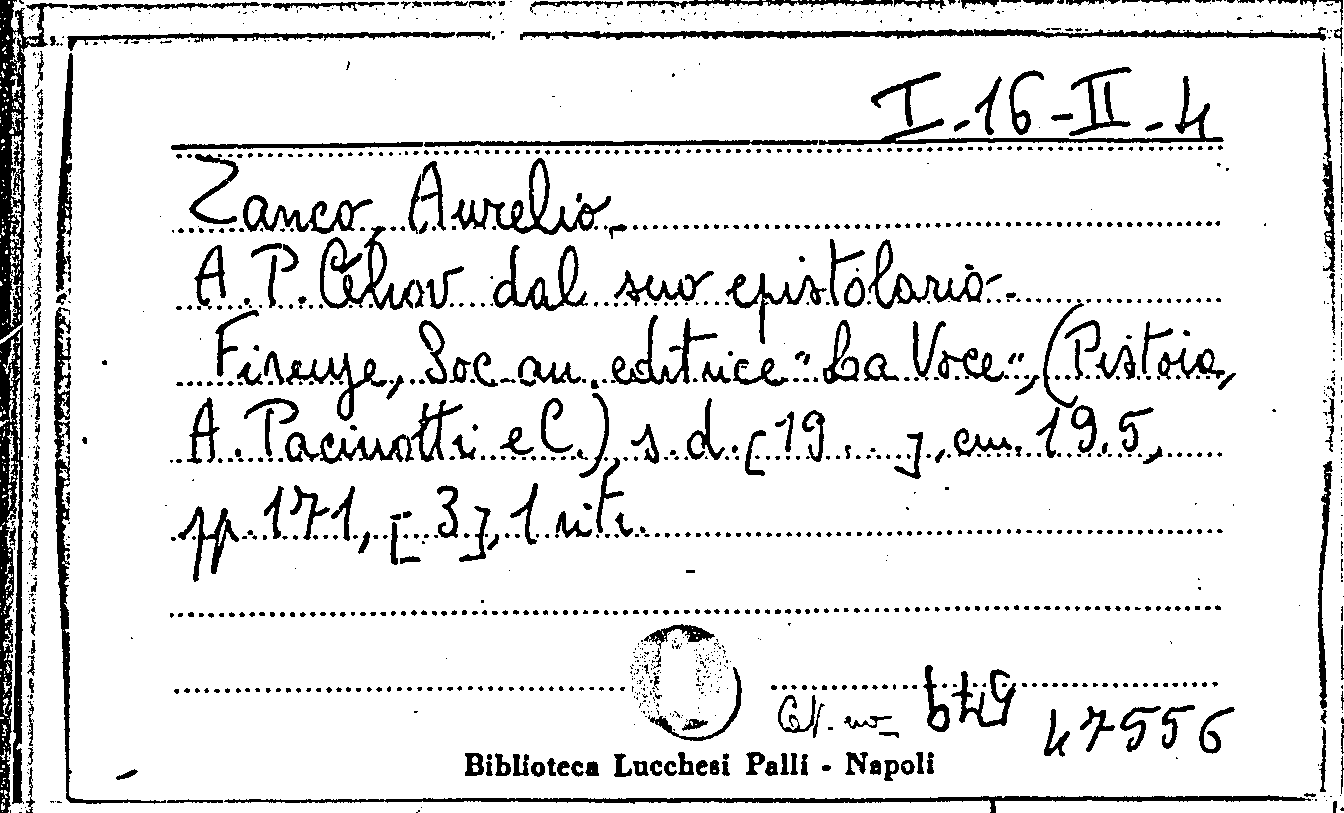 I-16-II-4
Zanco, Aurelio.
A. P. Céhov dal suo epistolario.
Firenze, Soc. an. editrice "La Voce", (Pistoia,
A. Pacinotti e C.), s. d. [19 . . ], cm. 19,5,
pp. 171, [3], 1 ritr.
47556
Biblioteca Lucchesi Palli - Napoli